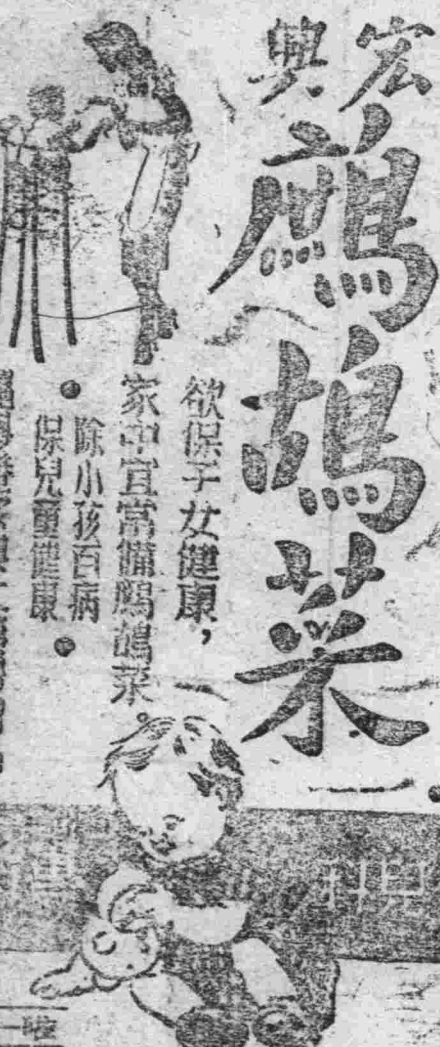 宏興
鷓鴣菜
欲保子女健康，
家中宜常備鷓鴣菜。
●除小孩百病
保兒童健康●
兒科